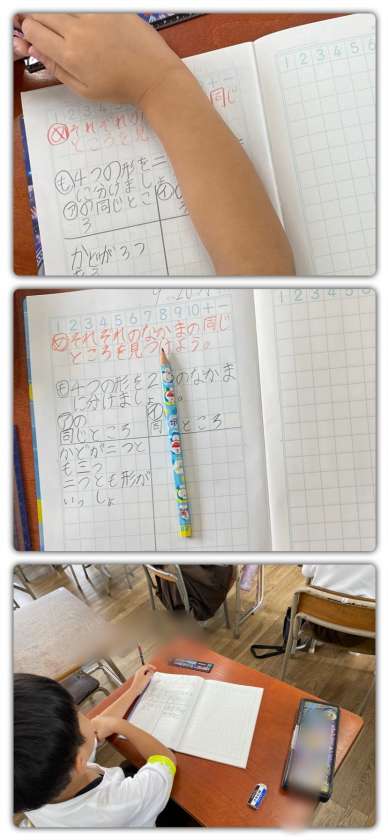 1 2 3 4
+ -
1 2 3 4 5 6
め それぞれの 同じ
ところを見
も 4つの形を二
に分けまし
アの同じとこ
ろ
かどが3つ
1 2 3 4 5 6 7 8 9 10 + -
1 2 3 4 5 6
め それぞれのなかまの同じ
ところを見つけよう。
も 4つの形を2 のなかま
に分けましょ 。
アの
同じところ
イ
同 ところ
かどが二つと
も三つ
二つとも形が
いっしょ